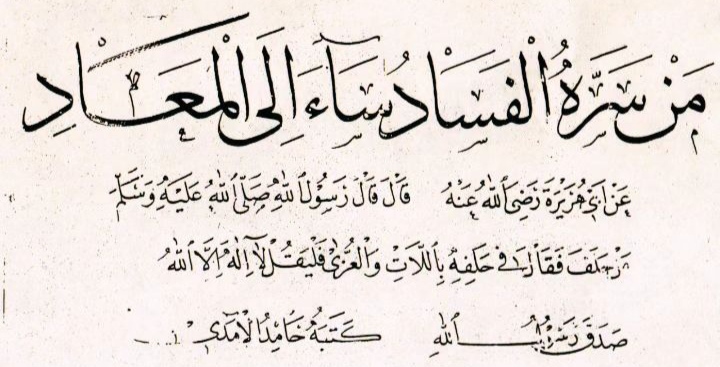 مَنْ سَرَّهُ الْفَسَادُ سَآءَ اِلَى الْمَعَادِ
عَنْ اَبِى هُرَيْرَةَ رَضِىَ اللّٰهُ عَنْهُ قَالَ قَالَ رَسُولُ اللّٰهِ صَلَّى اللّٰهُ عَلَيْهِ وَسَلَّمَ
مَنْ حَلَفَ فَقَالَ فِى حَلَفِهِ بِاللَّاتِ وَالْعُزّٰى فَلْيَقُلْ لَآ اِلٰهَ اِلَّا اللّٰهُ
صَدَقَ رَسُولُ اللّٰهِ كَتَبَهُ حَامِدُ الْاٰمِدِى